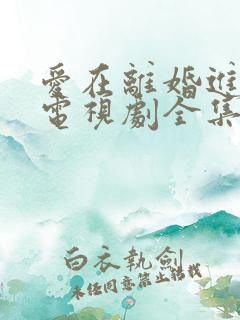 愛在離婚進
電視劇全集
白衣執劍
未经同意禁止轉載